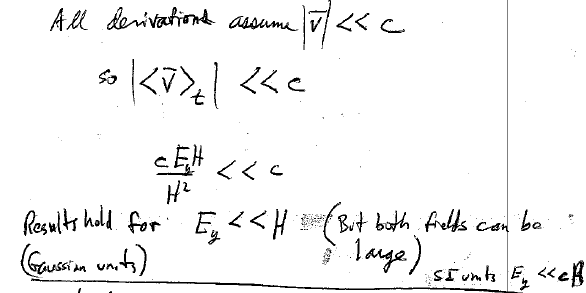 All derivations assume |v̄| << c
so |<v̄>ₜ| << c
cE_yH / H² << c
Results hold for E_y << H (But both fields can be large)
(Gaussian units)
SI units E_y << cB